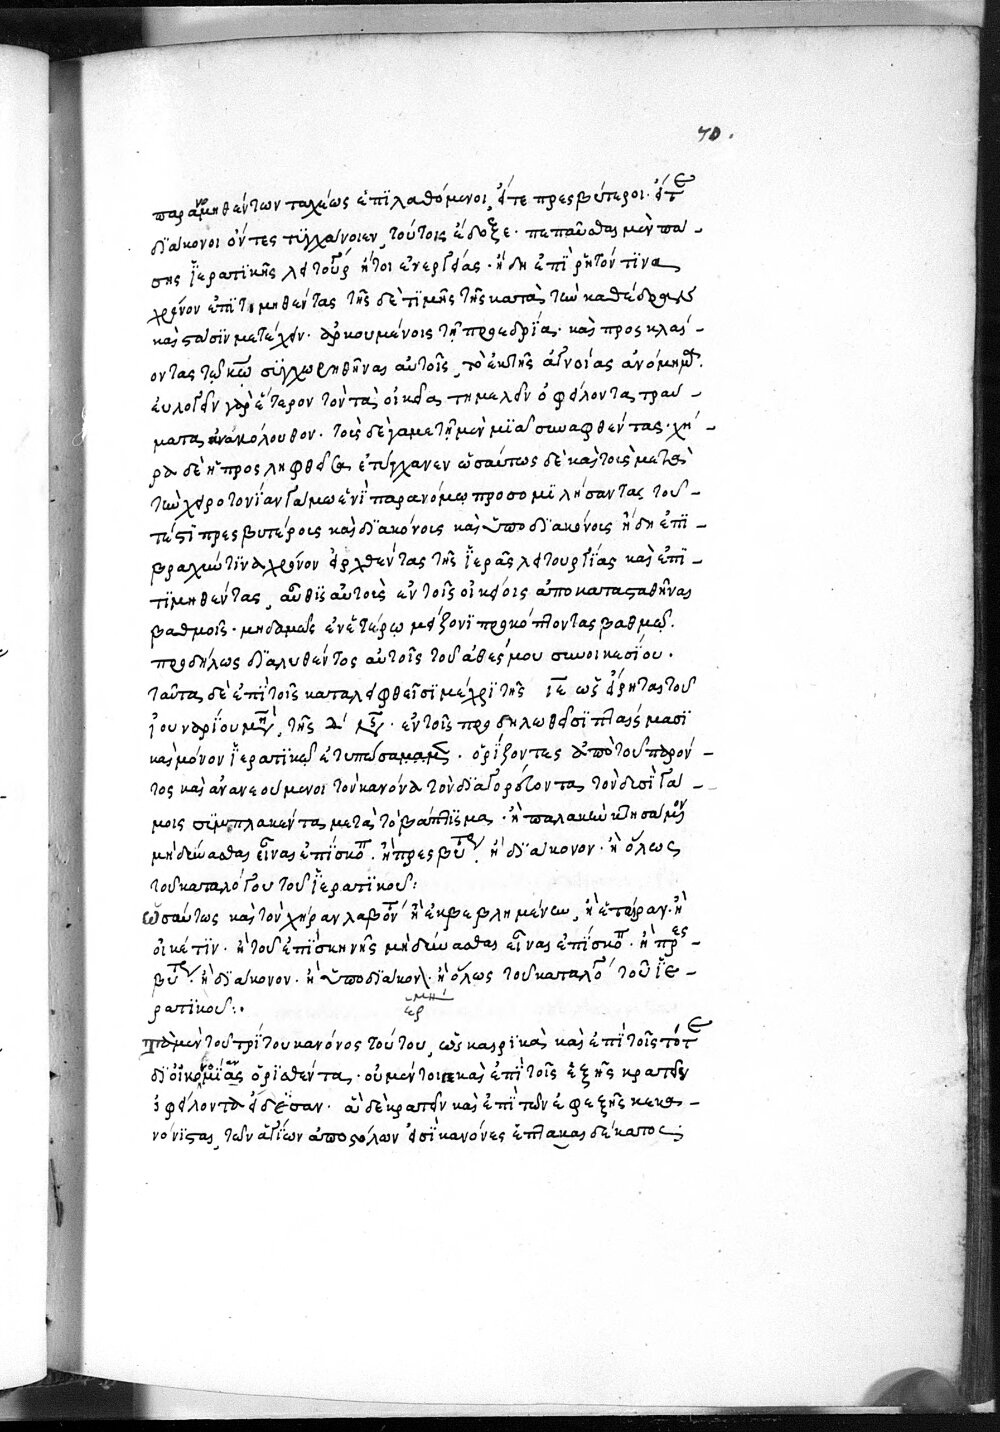 70.
παρανομηθέντων ταχέως ἐπϊλαθόμενοι, εἴτε πρεσβύτεροι· εἴτε
δϊάκονοι ὄντες τϋγχάνοιεν, τούτοις ἔδοξε· πεπαῦσθαι μὲν πά-
σης ἱερατϊκῆς λειτουργ ἤτοι ἐνεργείας· ἤδη ἐπῒ ῥητόν τϊνα
χρόνον ἐπϊτιμηθέντας τῆς δὲ τϊμῆς τῆς κατὰ τὴν καθέδραν
καὶ στάσϊν μετέχειν· ἀρκουμένοις τῆ προεδρία· καὶ προσκλαί-
οντας τῶ κω σϋγχωρηθῆναι αὐτοῖς, τὸ ἐκ τῆς ἀγνοίας ἀνόμημα.
εὐλογεῖν γὰρ ἕτερον τὸν τὰ οἰκεῖα τημελεῖν ὀφείλοντα τραύ-
ματα ἀνακόλουθον. τοὺς δὲ γαμετῆ μὲν μϊᾶ συναφθέντας· χή-
ρα δὲ ἡ προσληφθεῖσα ἐτύγχανεν ὡσαύτως δὲ καὶ τοὺς μετὰ
τὴν χειροτονΐαν γάμω ἑνῒ παρανόμω προσομϊλήσαντας τουτ-
τέστϊ πρεσβυτέροις καὶ δϊακόνοις καὶ ὑποδϊακόνοις ἤδη ἐπῒ
βραχύν τϊνα χρόνον εἰρχθέντας τῆς ἱερᾶς λειτουργΐας καὶ ἐπϊ-
τϊμηθέντας, αὖθϊς αὐτοὺς ἐν τοῖς οἰκείοις ἀποκατασταθῆναι
βαθμοῖς· μηδαμῶς ἐν ἑτέρω μείζονϊ προκόπτοντας βαθμῶ.
προδήλως δϊαλυθέντος αὐτοῖς τοῦ ἀθέσμου συνοικεσίου.
ταῦτα δὲ ἐπῒ τοῖς καταλειφθεῖσϊ μέχρϊ τῆς ιε ὡς εἴρηται τοῦ
ἰουναρΐου μη, τῆς δ ιν· ἐν τοῖς προδηλωθεῖσϊ πταίσμασϊ
καὶ μόνον ἱερατϊκῶς ἐτυπώσαμεν. ὁρΐζοντες ἀπὸ τοῦ παρόν-
τος καὶ ἀνανεούμενοι τὸν κανόνα τὸν δϊαγορεύοντα, τὸν δυσῒ γά-
μοις σϋμπλακέντα μετὰ τὸ βάπτϊσμα· ἢ παλακὴν κτησάμενον
μὴ δύνασθαι εἶναι ἐπίσκοπ. ἢ πρεσβύτερον· ἢ δϊάκονον· ἢ ὅλως
τοῦ καταλόγου τοῦ ἱερατϊκοῦ:
ὡσαύτως καὶ τὸν χήραν λαβόντ ἢ ἐκβεβλημένην, ἢ ἑταίραν· ἢ
οἰκέτϊν· ἢ τοῦ ἐπῒ σκηνῆς μὴ δύνασθαι εἶναι ἐπίσκοπ· ἢ πρεσ-
βύτερον· ἢ δϊάκονον· ἢ ὑποδϊάκονον· ἢ ὅλως τοῦ καταλόγ τοῦ ἱε-
ρατϊκοῦ:.
ἑρμη
τὰ μὲν τοῦ τρΐτου κανόνος τούτου, ὡς καιρϊκὰ καὶ ἐπῒ τοῖς τότε
δϊ οἰκονομίαν ὁρϊσθέντα· οὐ μέντοι καὶ ἐπῒ τοῖς ἑξῆς κρατεῖν
ὀφείλοντα εἴδεισαν· ἃ δὲ κρατεῖν καὶ ἐπῒ τῶν ἐφεξῆς κεκα-
νόνϊσται, τῶν ἁγΐων ἀποστόλων εἰσῒ κανόνες ἑπτακαιδέκατος